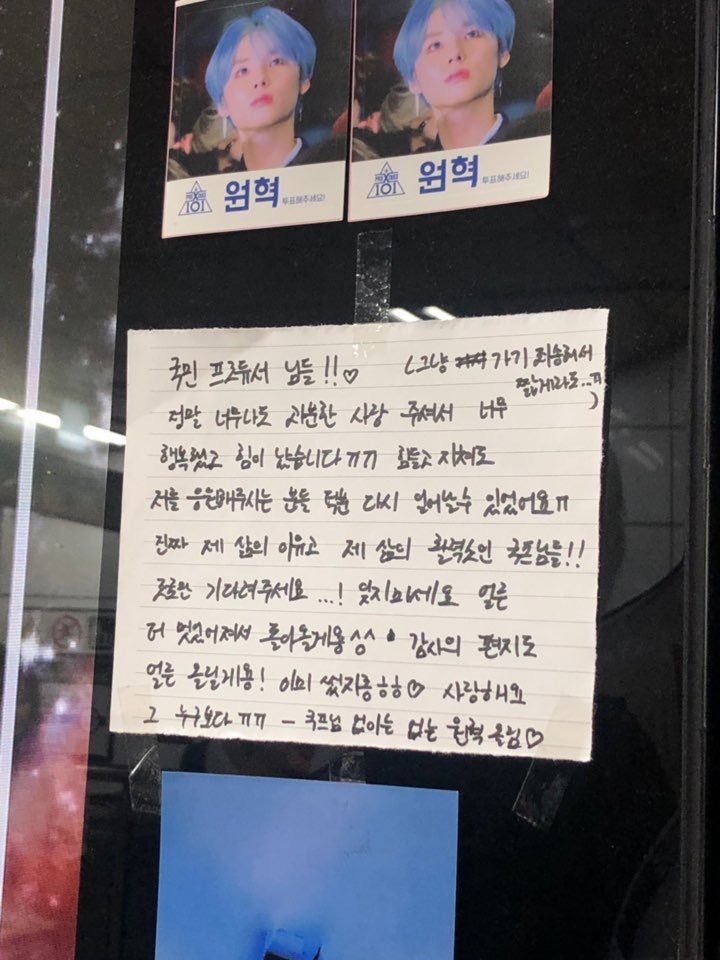 PRODUCE X 101
원혁 투표해주세요!
PRODUCE X 101
원혁 투표해주세요!
국민 프로듀서 님들!!♡ (그냥 가기 죄송해서
짧게라도..ㅠ)
정말 너무나도 과분한 사랑 주셔서 너무
행복했고 힘이 났습니다ㅠㅠ 힘들고 지쳐도
저를 응원해주시는 분들 덕분 다시 일어날수 있었어요ㅠ
진짜 제 삶의 이유고 제 삶의 활력소인 국프님들!!
조금만 기다려주세요...! 잊지마세요 얼른
더 멋있어져서 돌아올게용^^ • 감사의 편지도
얼른 올릴게용! 이미 썼지롱ㅎㅎ♡ 사랑해요
그 누구보다ㅠㅠ - 국프님 없이는 없는 원혁 올림♡